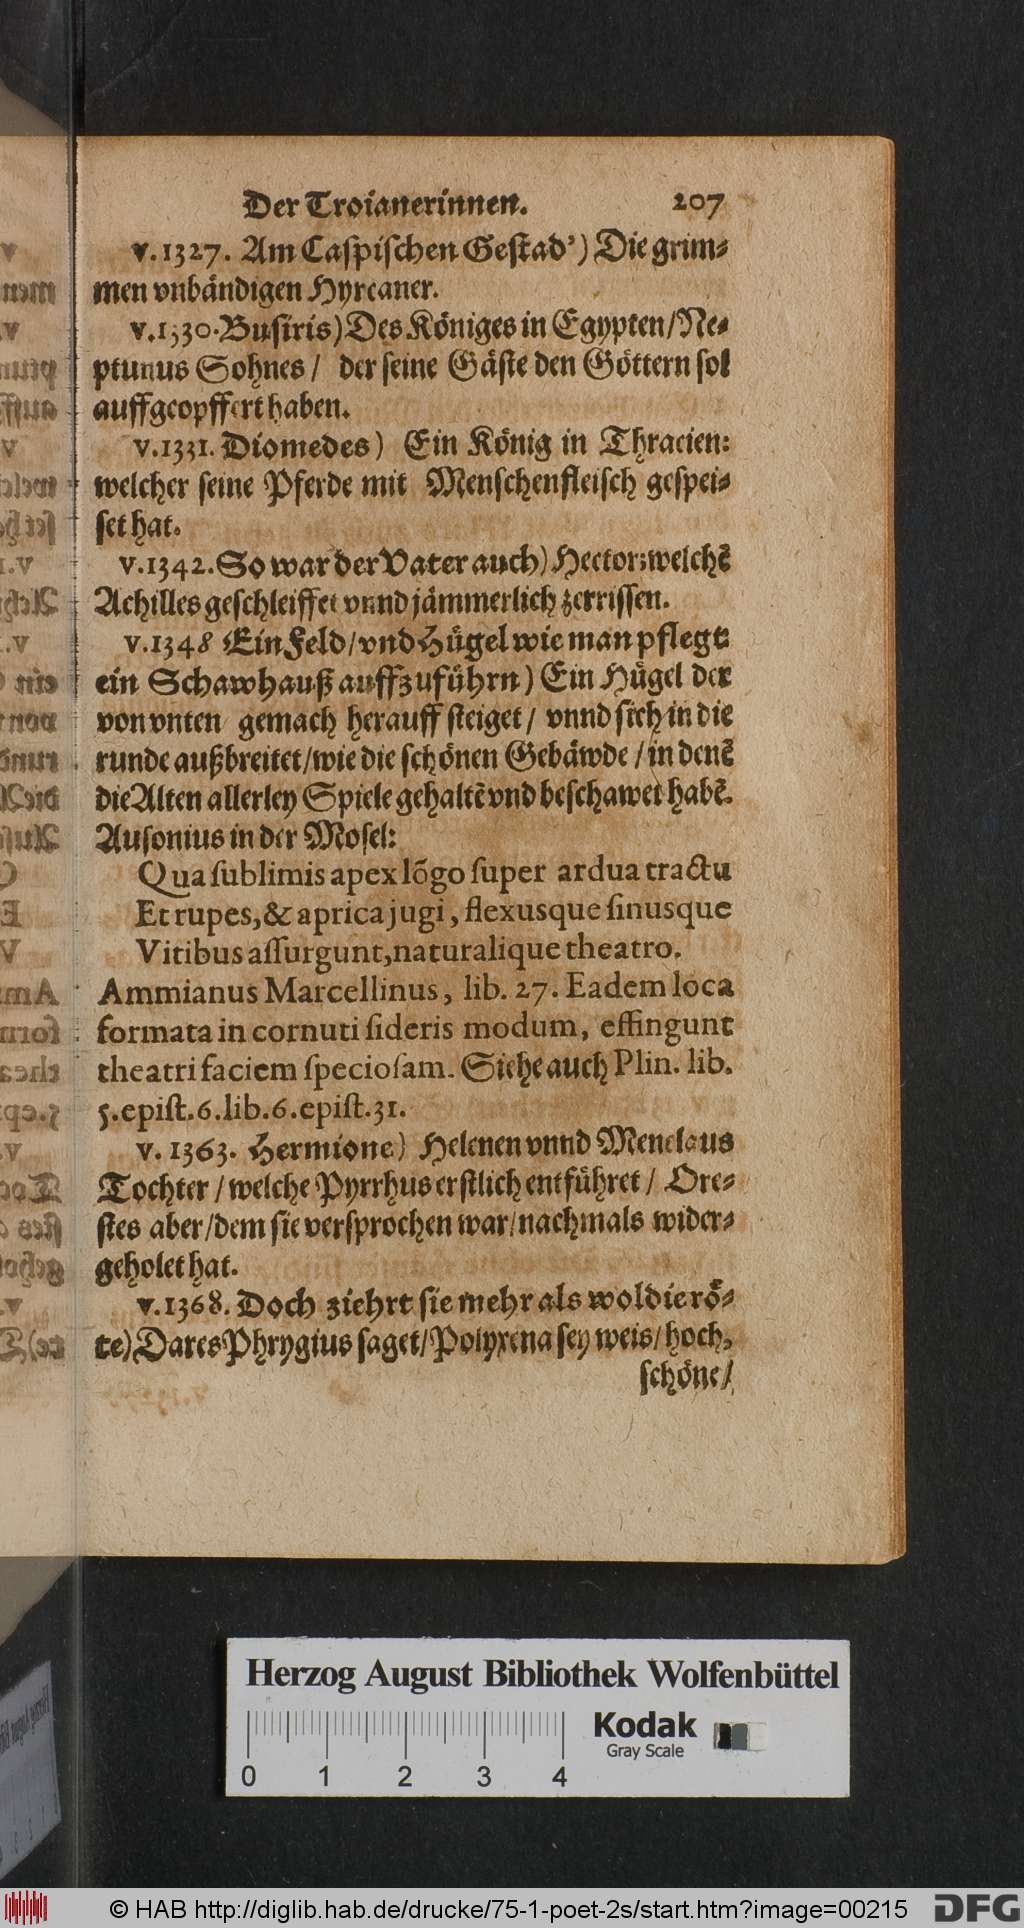 Der Troianerinnen. 207
v. 1327. Am Caſpiſchen Geſtad') Die grim⸗
men vnbändigen Hyrcaner.
v. 1330. Buſiris) Des Königes in Egypten/ Ne⸗
ptunus Sohnes/ der ſeine Gäſte den Göttern ſol
auffgeopffert haben.
v. 1331. Diomedes) Ein König in Thracien:
welcher ſeine Pferde mit Menſchenfleiſch geſpei⸗
ſet hat.
v. 1342. So war der Vater auch) Hector: welchē
Achilles geſchleiffet vnnd jämmerlich zerriſſen.
v. 1348 Ein Feld/ vnd Hügel wie man pflegt
ein Schawhauß auffzuführn) Ein Hügel der
von vnten gemach herauff ſteiget/ vnnd ſich in die
runde außbreitet/ wie die ſchönen Gebäwde/ in denē
die Alten allerley Spiele gehaltē vnd beſchawet habē.
Auſonius in der Moſel:
Qua ſublimis apex lõgo ſuper ardua tractu
Et rupes, & aprica jugi, flexusque ſinusque
Vitibus aſſurgunt, naturalique theatro.
Ammianus Marcellinus, lib. 27. Eadem loca
formata in cornuti ſideris modum, effingunt
theatri faciem ſpecioſam. Siehe auch Plin. lib.
5. epiſt. 6. lib. 6. epiſt. 31.
v. 1363. Hermione) Helenen vnnd Menelaus
Tochter/ welche Pyrrhus erſtlich entführet/ Ore⸗
ſtes aber/ dem ſie verſprochen war/ nachmals wider⸗
geholet hat.
v. 1368. Doch ziehrt ſie mehr als wol die rö⸗
te) Dares Phrygius ſaget/ Polyxena ſey weis/ hoch,
ſchöne/
Herzog August Bibliothek Wolfenbüttel
Kodak
Gray Scale
0 1 2 3 4
© HAB http://diglib.hab.de/drucke/75-1-poet-2s/start.htm?image=00215 DFG